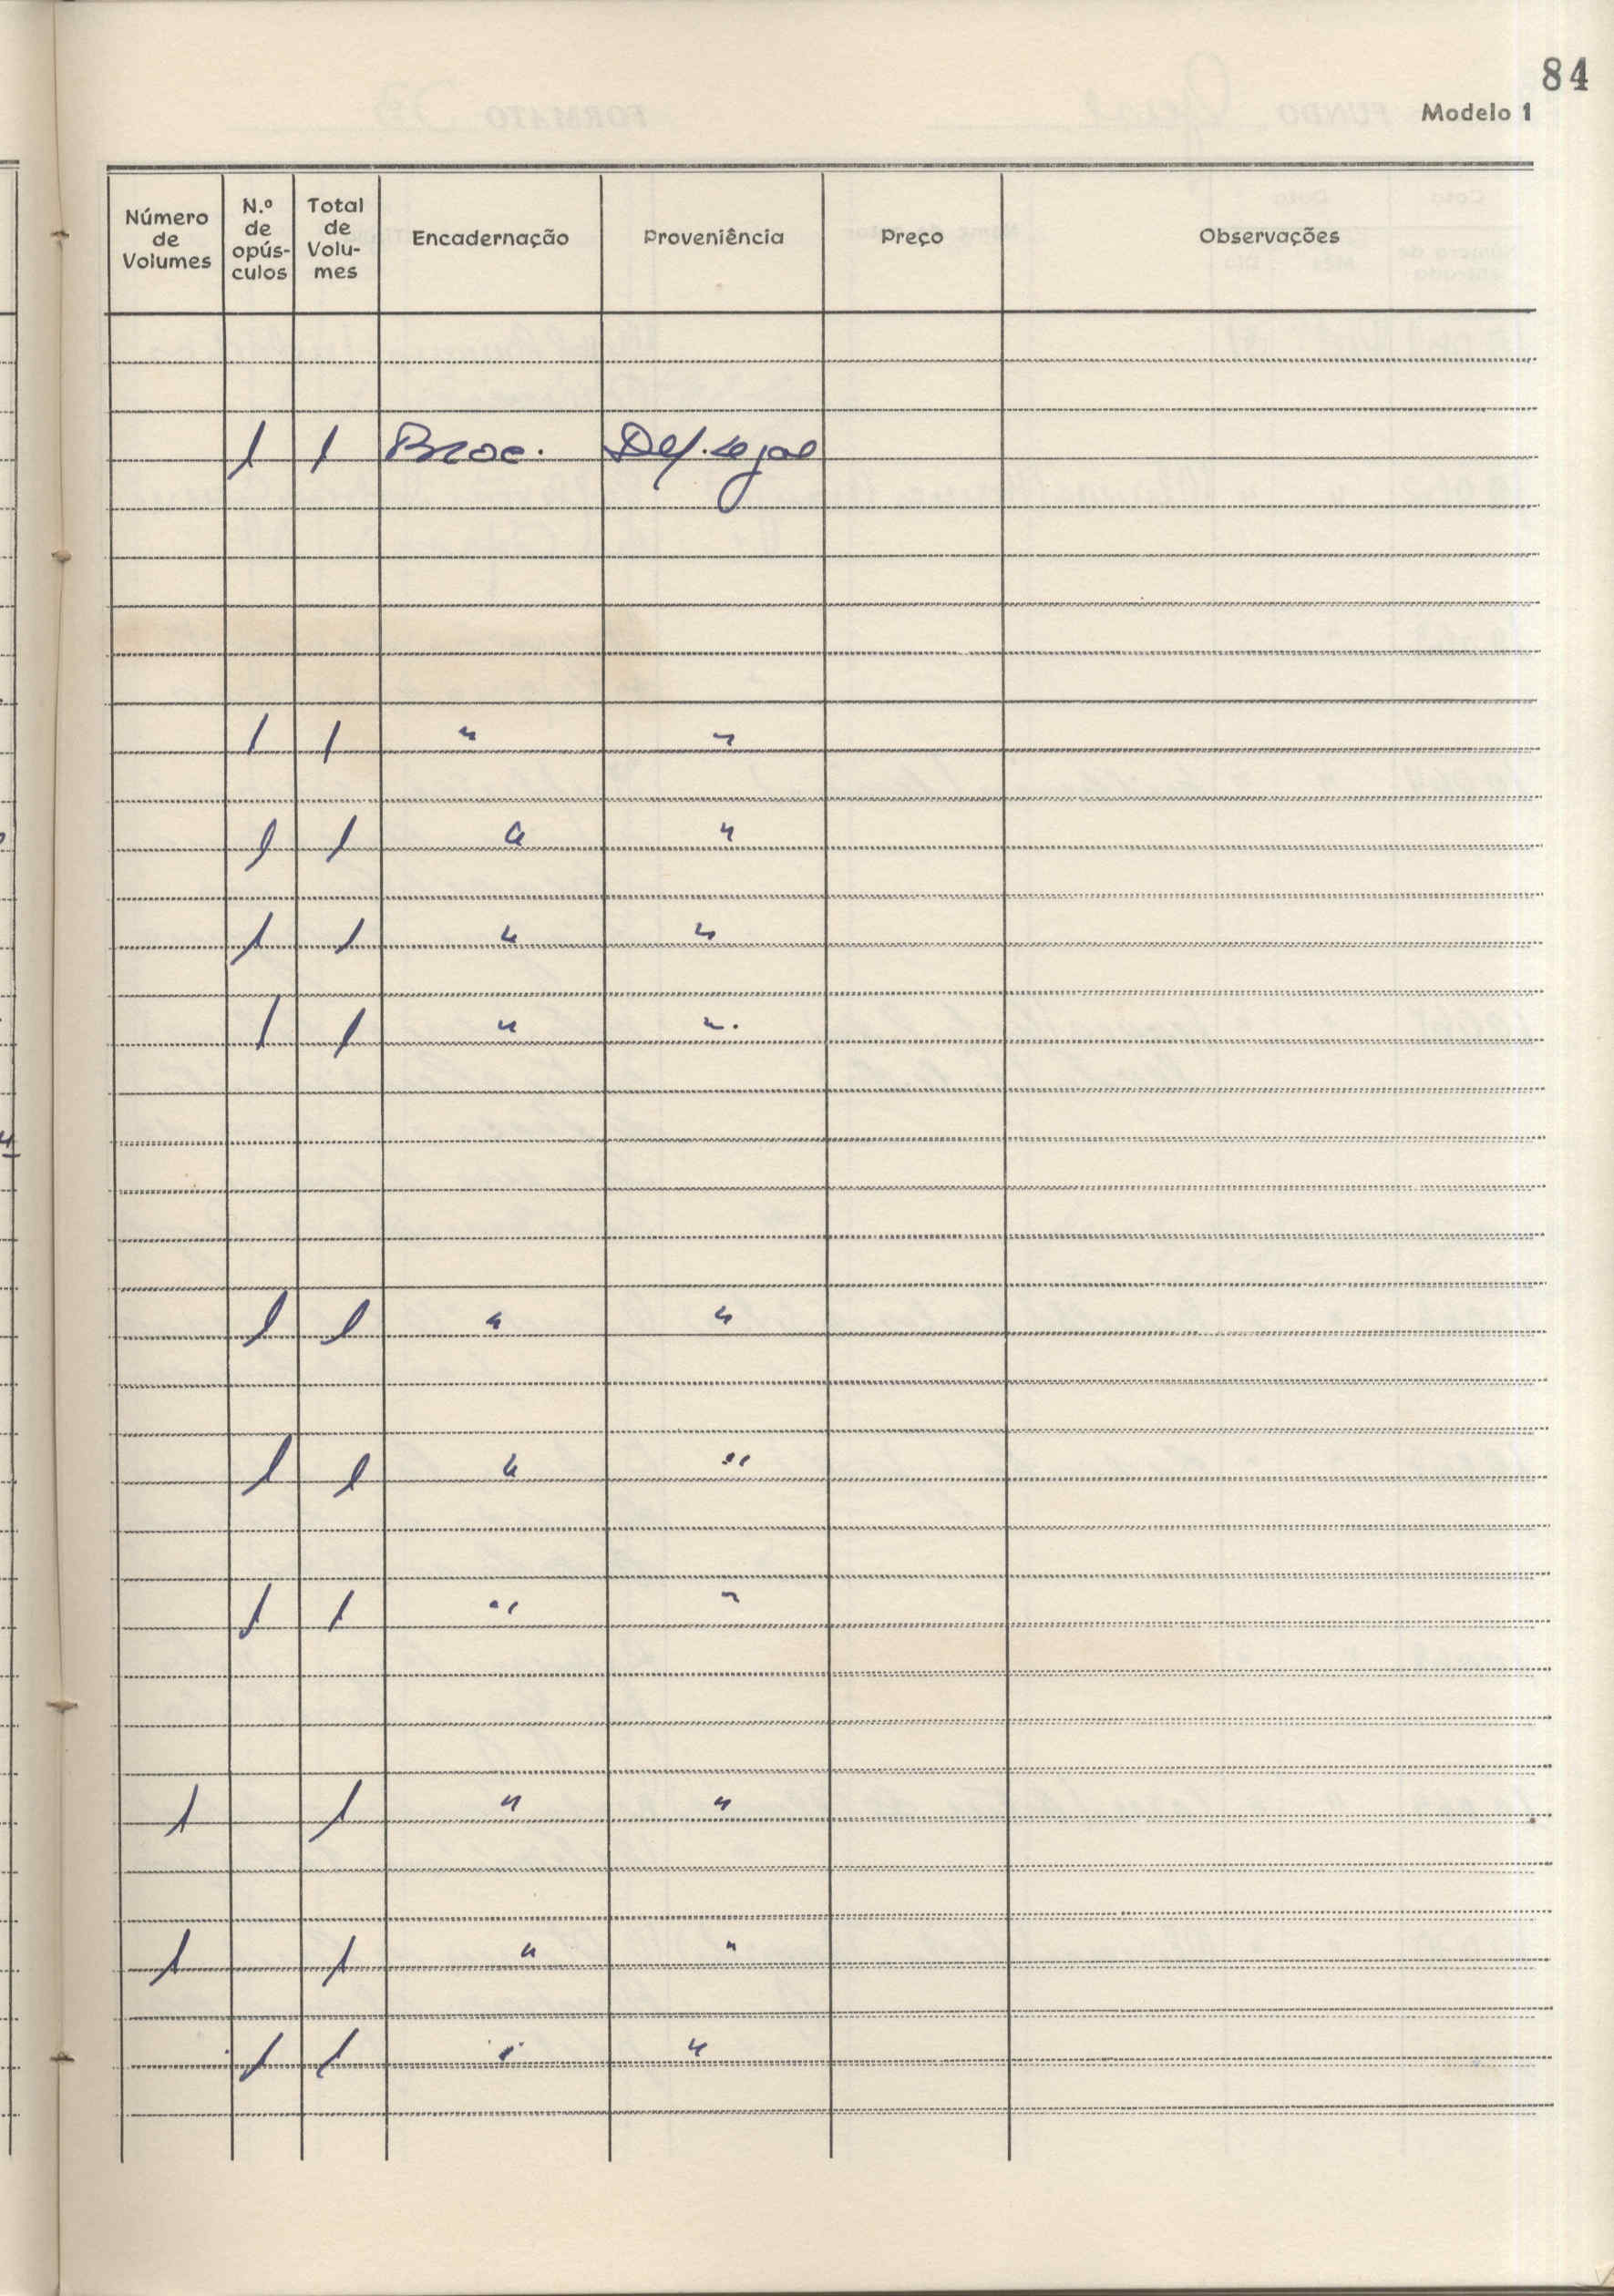 84
Modelo 1
Número de Volumes | N.º de opús-culos | Total de Volu-mes | Encadernação | Proveniência | Preço | Observações
1 1 Broc. Dep. Legal
1 1 " "
1 1 " "
1 1 " "
1 1 " "
1 1 " "
1 1 " "
1 1 " "
1 1 " "
1 1 " "
1 1 " "